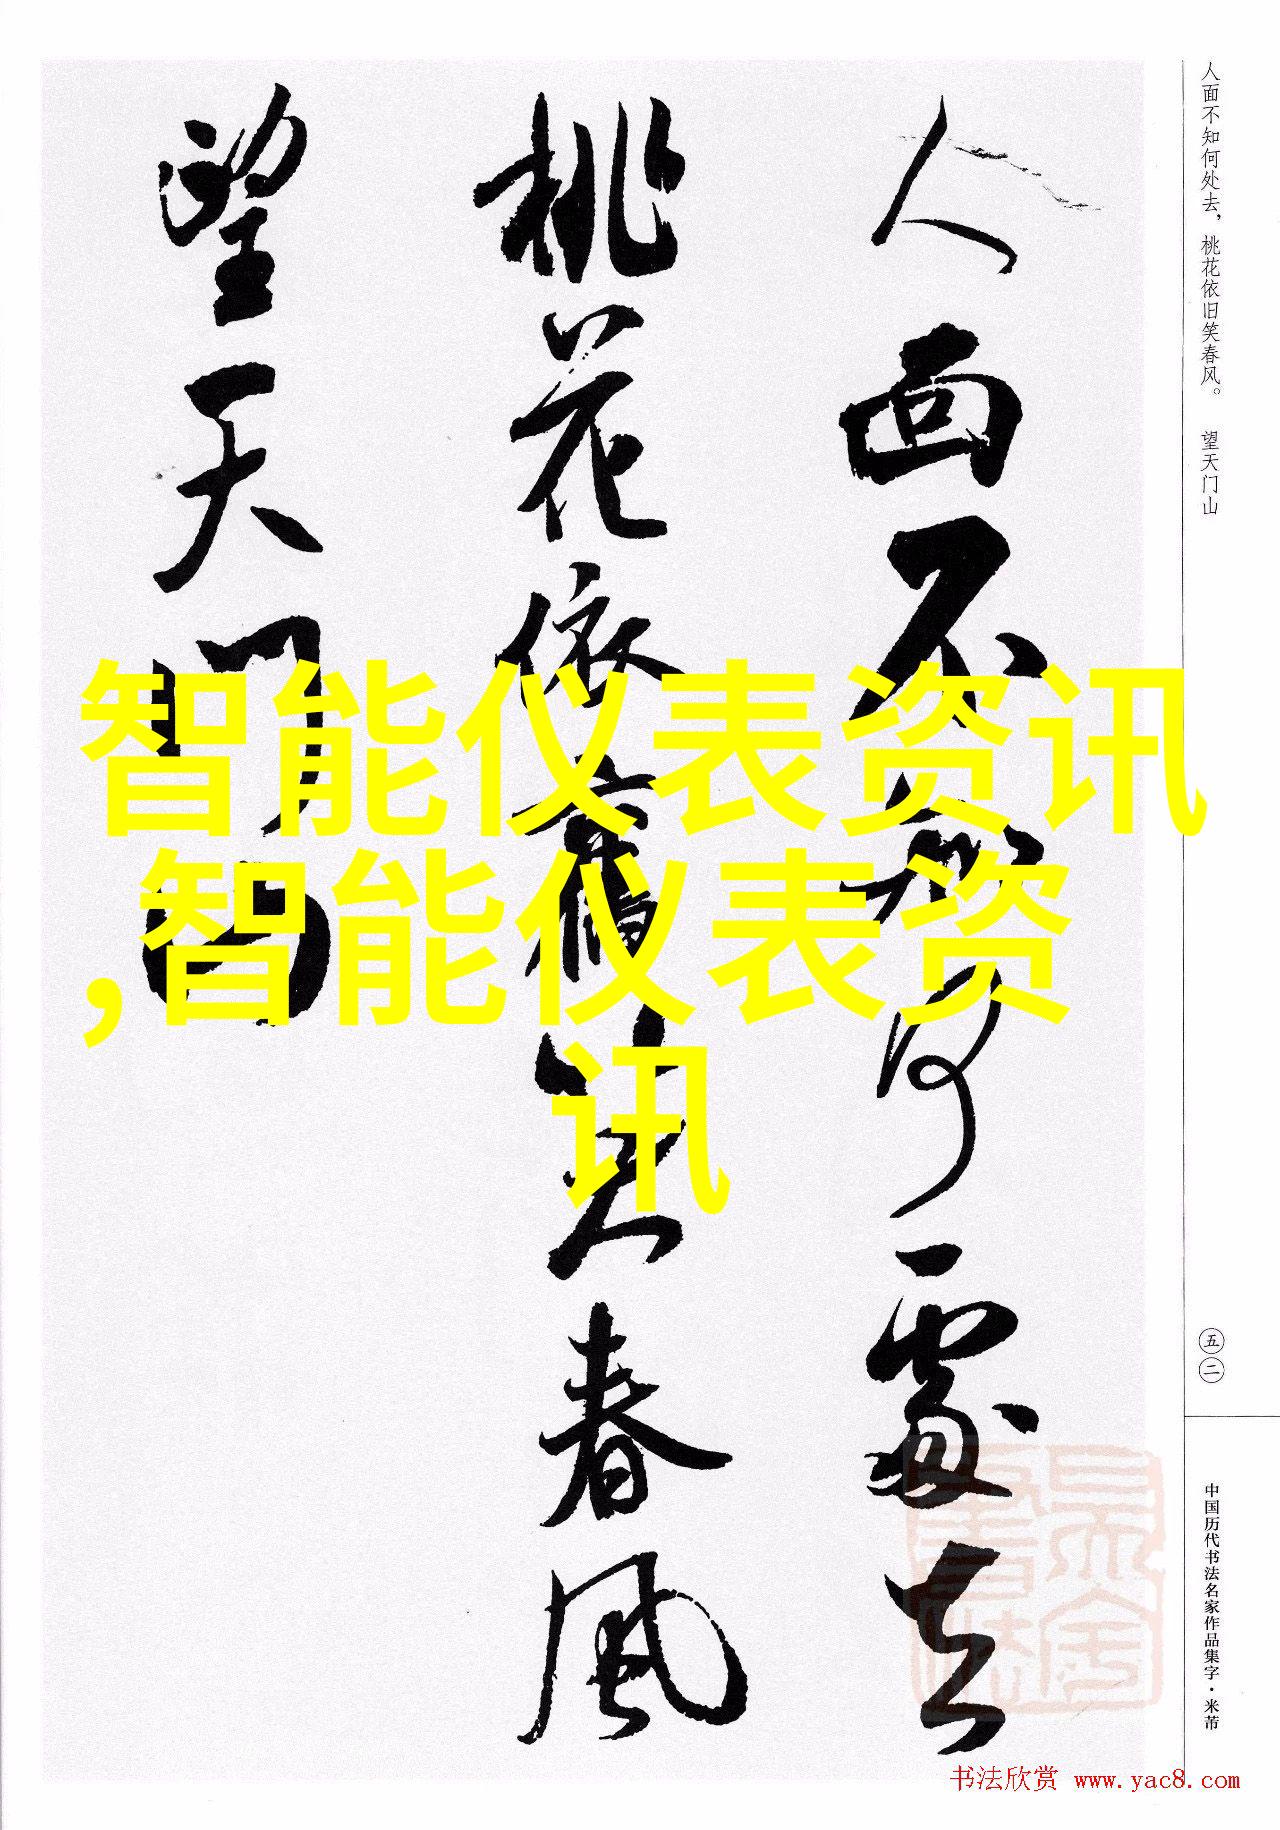 人面不知何处去，桃花依旧笑春风。 望天门山
五二
中国历代书法名家作品集字·米芾
人面不知何處去
桃花依舊笑春風
望天門山
智能仪表资讯
,智能仪表资
讯
书法欣赏 www.yac8.com